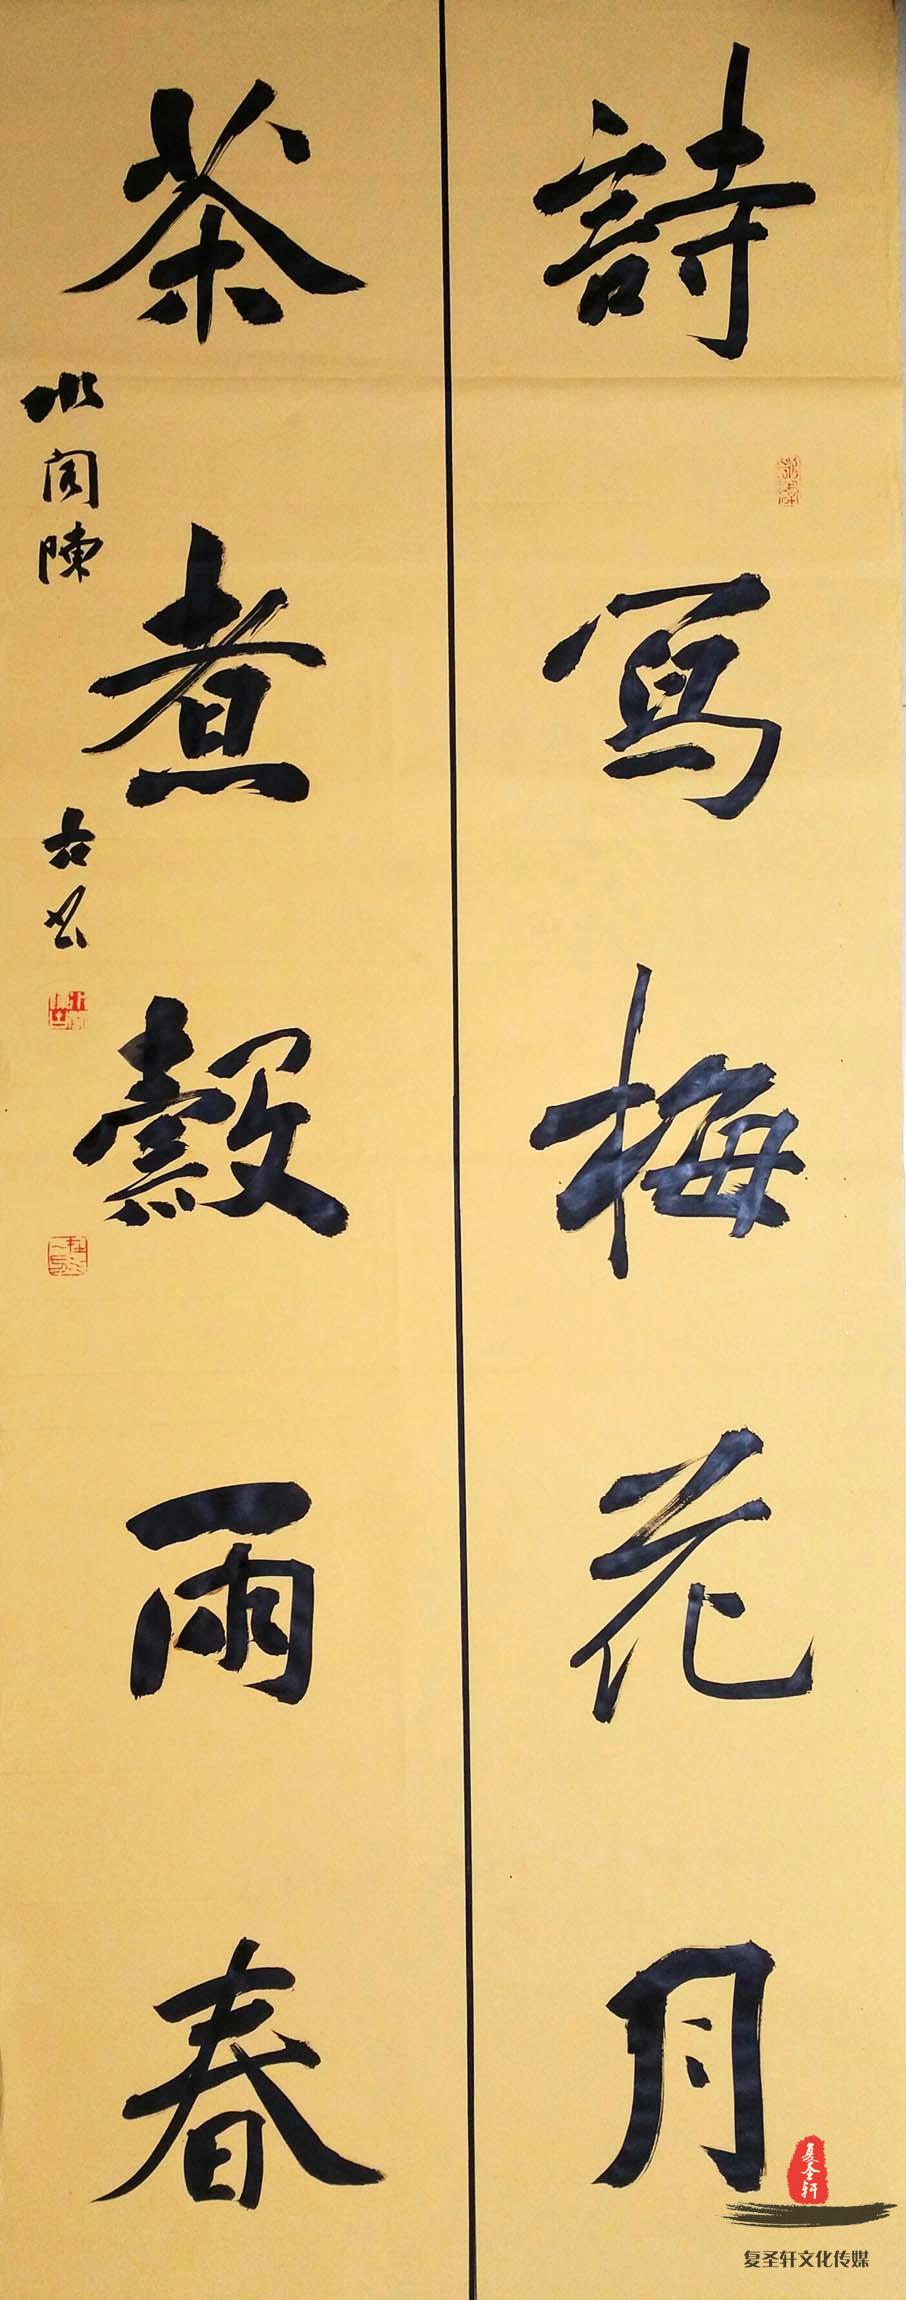 詩寫梅花月
茶煮穀雨春
复圣轩
复圣轩文化传媒